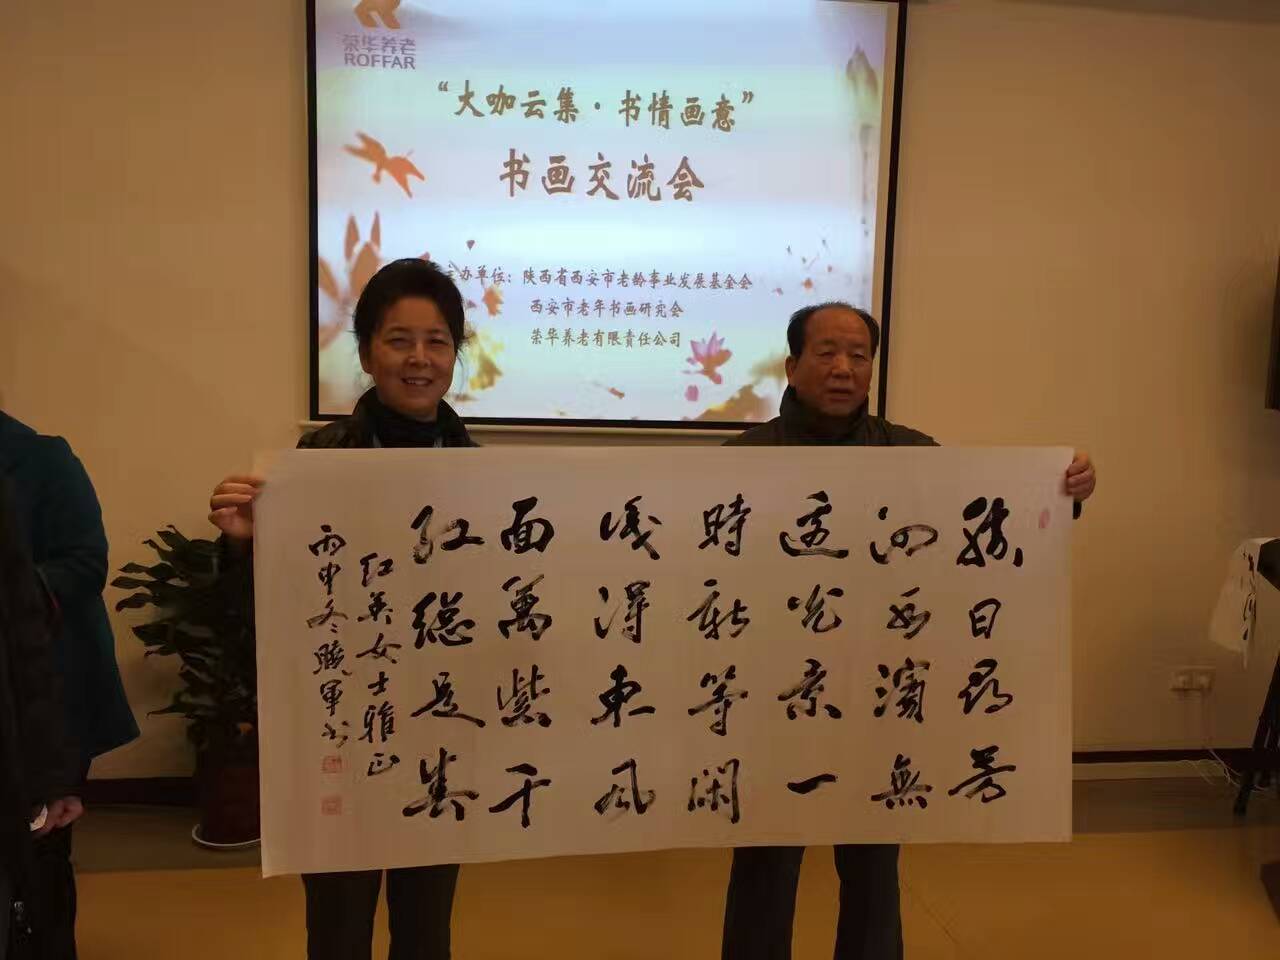 荣华养老
ROFFAR
“大咖云集·书情画意”
书画交流会
主办单位：陕西省西安市老龄事业发展基金会
西安市老年书画研究会
荣华养老有限责任公司
勝日尋芳
泗水濱無
邊光景一
時新等閑
識得東風
面萬紫千
紅總是春
红英女士雅正
丙申冬曉軍书